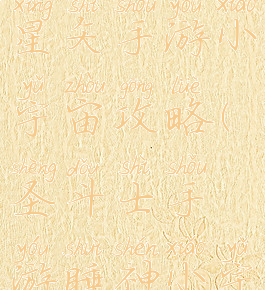 xīng shǐ shǒu yóu xiǎo
星矢手游小
yǔ zhòu gōng lüè
宇宙攻略(
shèng dòu shì shǒu
圣斗士手
yóu shuì shén xiǎo yǔ
游睡神小宇